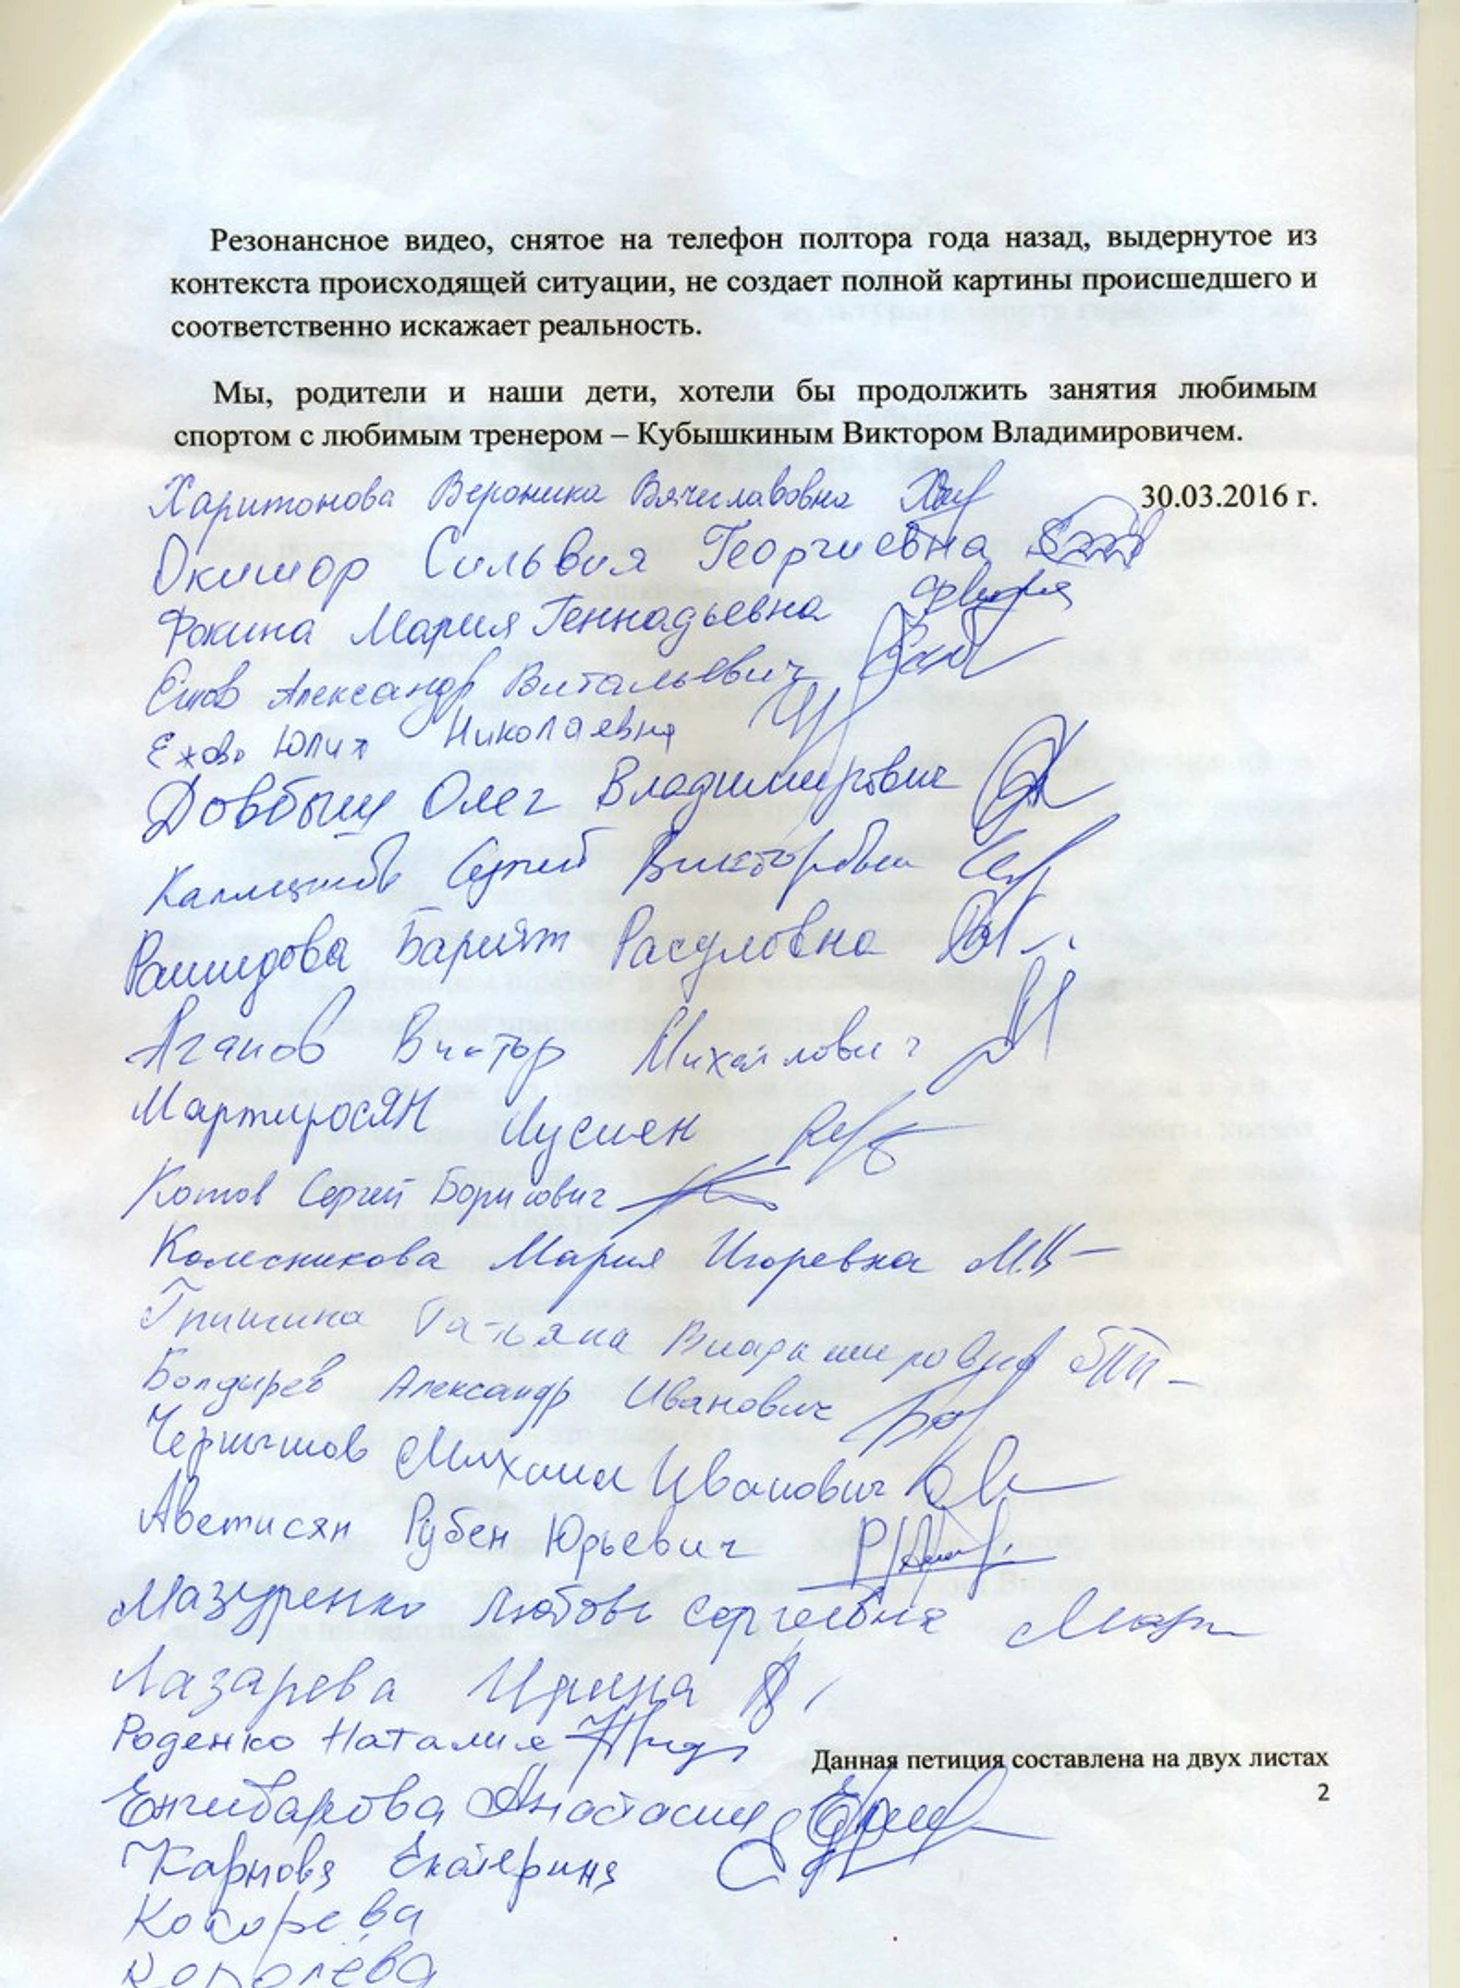 Резонансное видео, снятое на телефон полтора года назад, выдернутое из
контекста происходящей ситуации, не создает полной картины происшедшего и
соответственно искажает реальность.
Мы, родители и наши дети, хотели бы продолжить занятия любимым
спортом с любимым тренером – Кубышкиным Виктором Владимировичем.
Харитонова Вероника Вячеславовна
30.03.2016 г.
Окишор Сильвия Георгиевна
Фокина Мария Геннадьевна
Александр Витальевич
Ежова Юлия Николаевна
Довбыш Олег Владимирович
Сергей Викторович
Рашидова Барият Расуловна
Агапов Виктор Михайлович
Мартиросян Лусиен
Котов Сергей Борисович
Колесникова Мария Игоревна
Гришина Татьяна Владимировна
Болдырев Александр Иванович
Чернышов Михаил Иванович
Аветисян Рубен Юрьевич
Мазуренко Любовь Сергеевна
Лазарева Ирина
Роденко Наталия
Данная петиция составлена на двух листах
2
Енгибарова Анастасия
Карпова Екатерина
Кокорева
Королёва